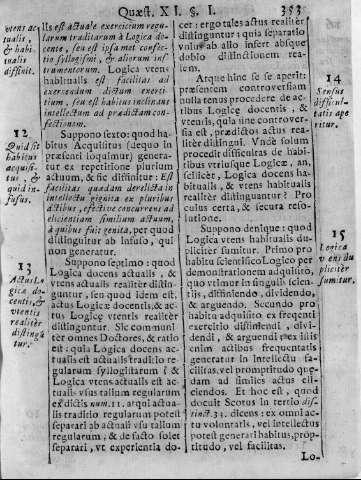 Quæst. XI. §. I. 353
vtens actualis, & habitualis diffinit.
lis est actuale exercicium regu-
larum traditarum à Logica do-
cente, seu est ipsa met confec-
tio syllogismi, & aliorum ins-
trumentorum. Logica vtens
habitualis est facilitas ad
exercendum dictum exerci-
tium, seu est habitus inclinans
intellectum ad prædictam con-
fectionem.
12
Quid sit habitus acquisitus, & quid infusus.
Suppono sexto: quod habi-
tus Acquisitus (dequo in
præsenti loquimur) genera-
tur ex repetitione plurium
actuum, & sic diffinitur: Est
facilitas quædam derelicta in
intellectu gignita ex pluribus
actibus, efectiue concurrens ad
elicientiam similium actuum,
à quibus fuit genita, per quod
distinguitur ab Infuso, qui
non generatur.
13
Actus Logica docentis, & vtentis realitèr distinguitur.
Suppono septimo: quod
Logica docens actualis, &
vtens actualis realitèr distin-
guntur, seu quod idem est,
actus Logicę docentis, & ac-
tus Logicę vtentis realitèr
distinguntur. Sic communi-
ter omnes Doctores, & ratio
est: quia Logica docens ac-
tualis est actualis traditio re-
gularum syllogistarum; &
Logica vtens actualis est ac-
tualis vsus talium regularum
ex dictis num. 11. at qui actua-
lis traditio regularum potest
separari ab actuali vsu talium
regularum, & de facto solet
separari, vt experientia do-
cet: ergo tales actus realitèr
distinguntur: quia separatio
vnius ab alio infert absque
dubio distinctionem rea-
lem.
14
Sensus difficultatis aperitur.
Atque hinc se se aperit:
præsentem controversiam
nulla tenus procedere de ac-
tibus Logicę docentis, &
vtentis, quia sine controver-
sia est, prædictos actus rea-
litèr distingui. Vnde solum
procedit difficultas de habi-
tibus vtriusque Logicæ, an,
scilicèt, Logica docens habi-
tualis, & vtens habitualis
realitèr distinguantur? Pro
cuius certa, & secura reso-
lutione.
15
Logica vtens dupliciter sumitur.
Suppono nonò: quod
Logica vtens habitualis du-
pliciter sumitur. Primo pro
habitu scientifico Logico per
demonstrationem adquisito,
quo vtimur in singulis scien-
tiis, diffiniendo, dividendo,
& arguendo. Secundo pro
habitu adquisito ex frequenti
exercitio distiniendi, divi-
dendi, & arguendi; ex illis
enim actibus frequentatis
generatur in Intellectu fa-
cilitas, vel promptitudo quę-
dam ad similes actus eli-
ciendos. Et hoc est, quod
docuit Scotus in tertio dis-
tinct. 33. dicens: ex omni ac-
tu voluntatis, vel intellectus
potest generari habitus, prõp-
titudo, vel facilitas.
Lo-